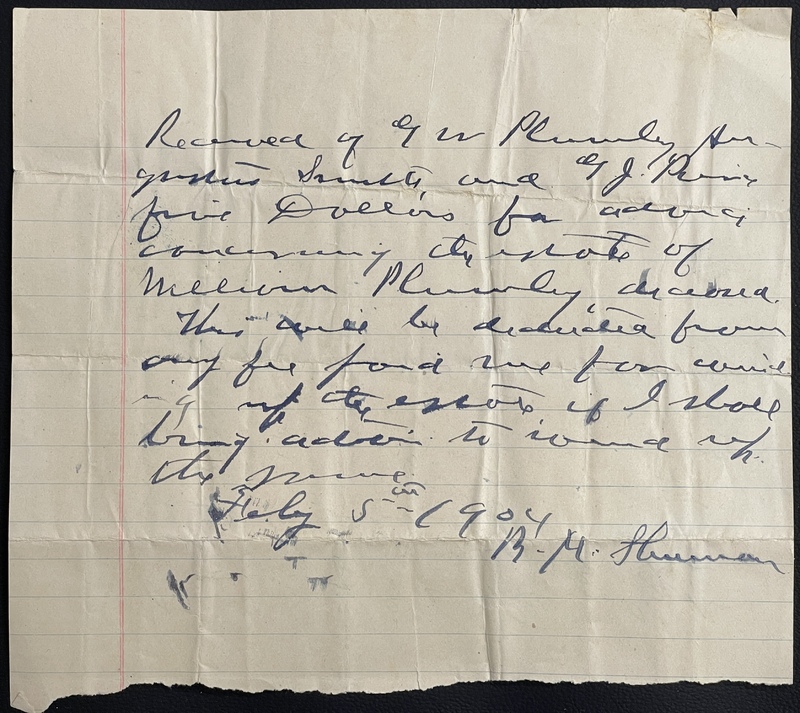 Received of G W Plumly Au-
gustus Smith, and G J.
five Dollars for advice
concerning the estate of
William Plumly, deceased.
This will be deducted from
any fee paid me for wind-
ing up the estate, if I shall
bring action to wind up
the same.
Feby 5th 1904
R. M. Shuman